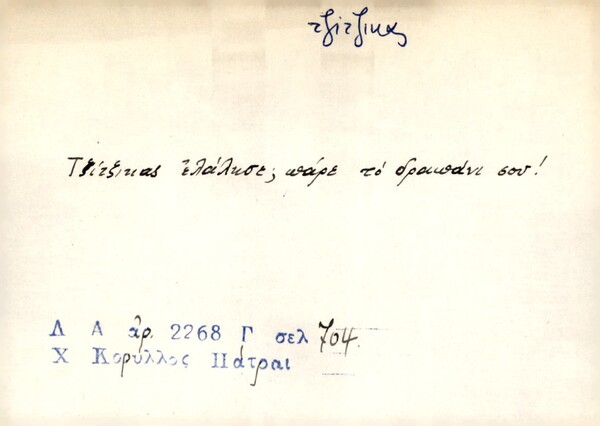 τζίτζικας
Τζίτζικας ἐλάλησε; πάρε τό δραπάνι σου!
Λ Α ἀρ. 2268 Γ σελ 704.
Χ Κορύλλος Πάτραι